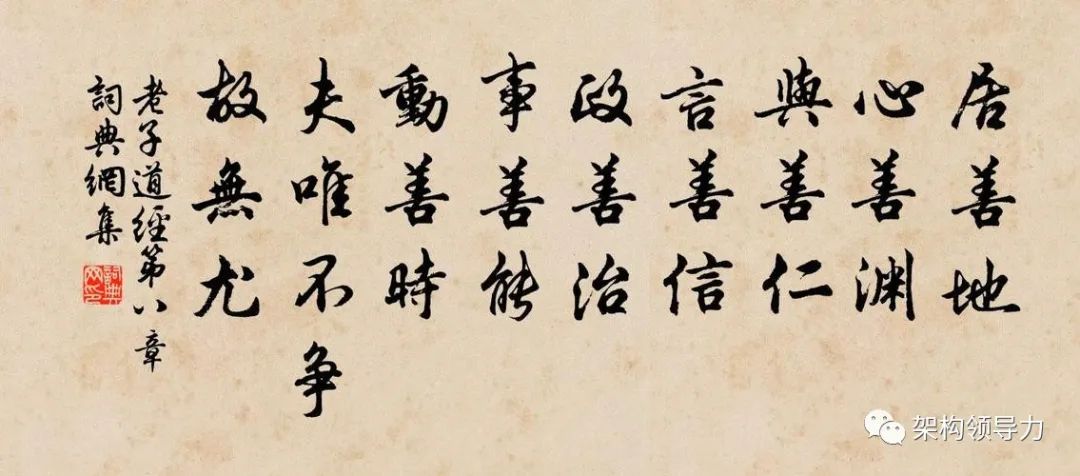 居善地
心善渊
與善仁
言善信
政善治
事善能
動善時
夫唯不争
故無尤
老子道經第八章
詞典網集
詞典
网印
架构领导力